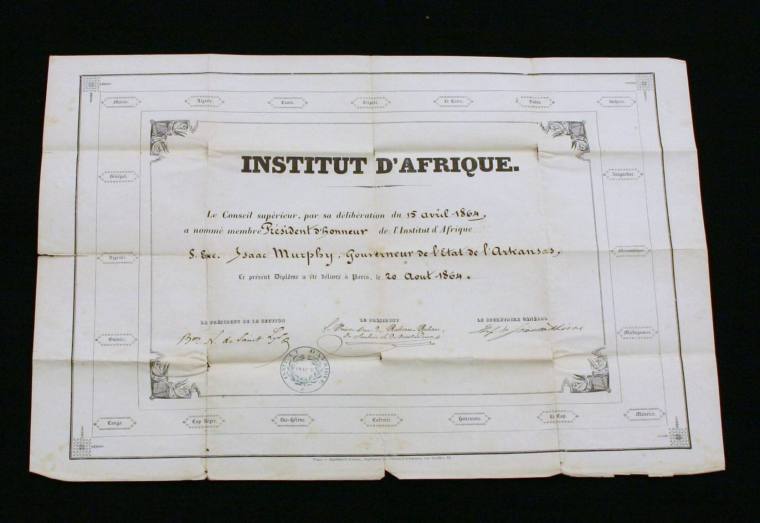 Maroc. Algérie. Tunis. Egypte. Le Caire. Nubie.
INSTITUT D'AFRIQUE.
Le Conseil supérieur, par sa délibération du 15 avril 1864,
a nommé membre Président d'honneur de l'Institut d'Afrique
S. Exc. Isaac Murphy, Gouverneur de l'Etat de l'Arkansas,
Le présent Diplôme a été délivré à Paris, le 20 Aout 1864.
LE PRÉSIDENT DE LA SECTION LE PRÉSIDENT LE SECRÉTAIRE GÉNÉRAL
Sénégal.
Zanguebar.
Mozambique.
Guinée.
Madagascar.
Congo. Cap Nègre. Ste-Hélène. Cafrerie. Hottentots. Le Cap. Maurice.